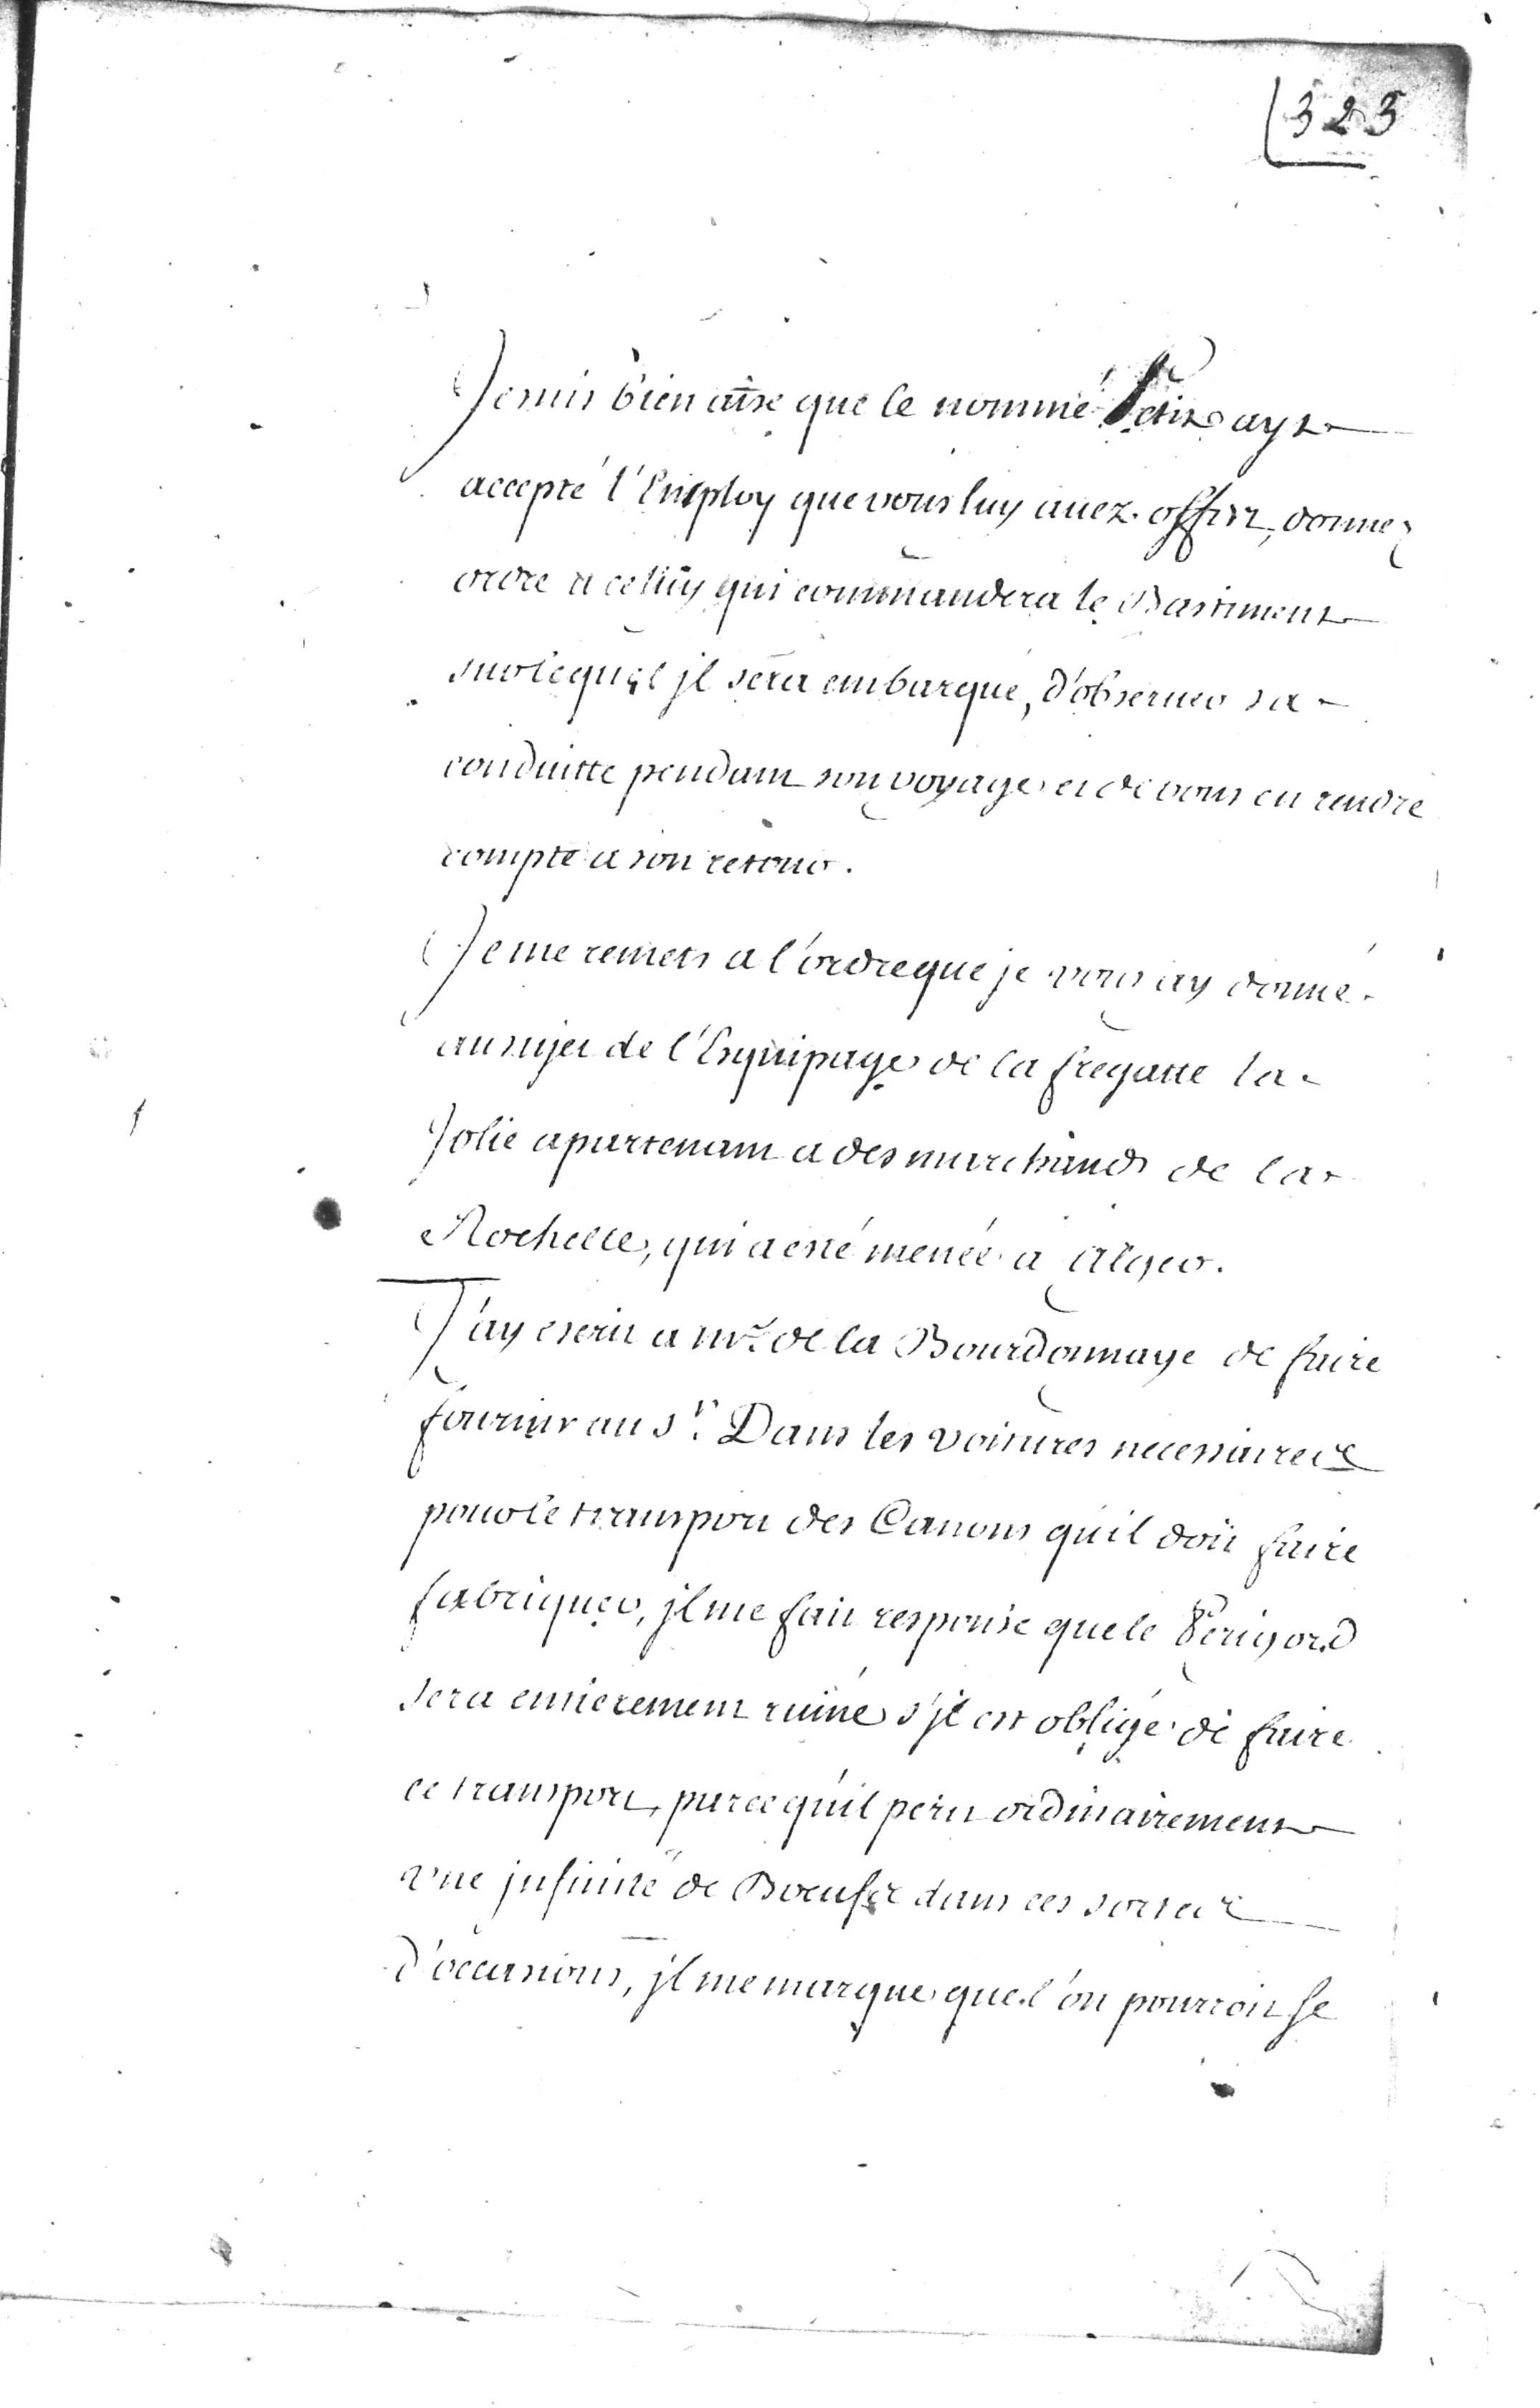 323
Je suis bien aise que le nommé Petit ayt
accepté l'Employ que vous luy auez offert, donnez
ordre a celuy qui commandera le Bastiment
sur lequel jl sera embarqué, d'obseruer sa
conduitte pendant son voyage et de vous en rendre
compte a son retour.
Je me remets a l'ordre que je vous ay donné
au sujet de l'Esquipage de la fregatte la
Jolie apartenant a des marchands de la
Rochelle, qui a esté menée a Alger.
J'ay escrit a mr. de la Bourdonnaye de faire
fournir au sr. Dans les voitures necessaires
pour le transport des Canons qu'il doit faire
fabriquer, jl me fait response que le Perigord
sera entierement ruiné s'jl est obligé de faire
ce transport, parce qu'il perit ordinairement
vne jnfinité de Boeufs dans ces sortes
d'occasions, jl me marque que l'on pourroit se